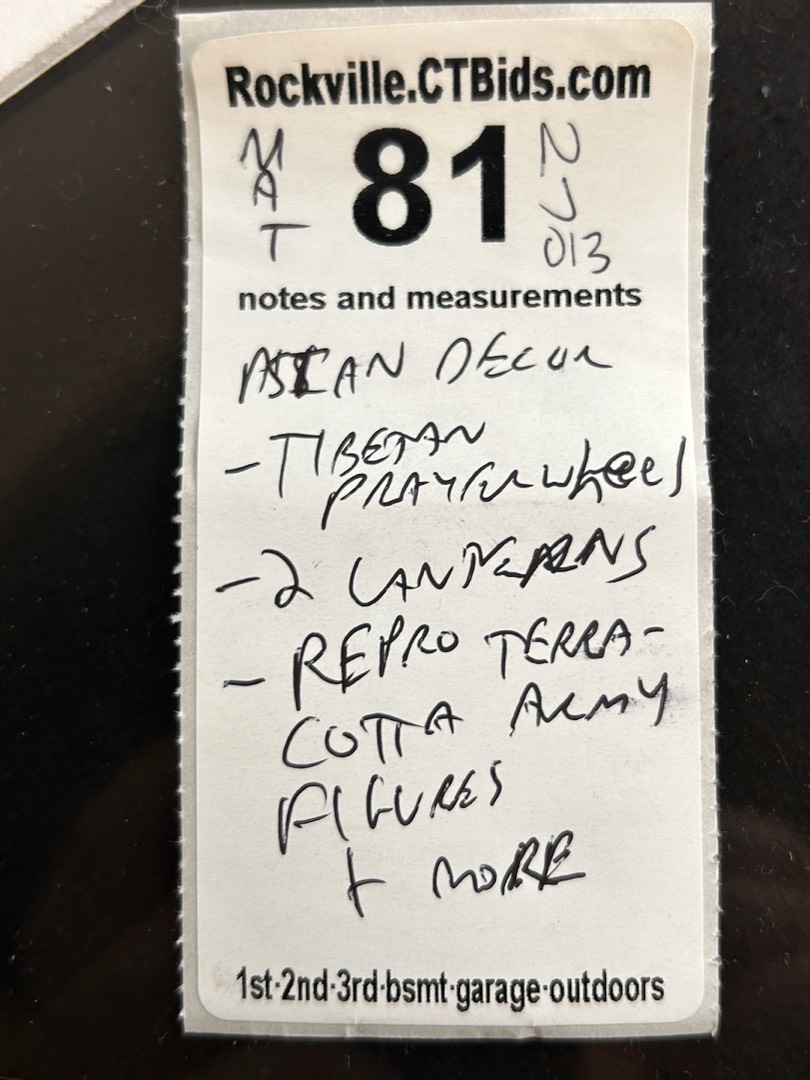 Rockville.CTBids.com
MAT 81 NJ 013
notes and measurements
ASIAN DECOR
- TIBETAN
PRAYER wheel
- 2 LANTERNS
- REPRO TERRA-
COTTA ARMY
FIGURES
+ MORE
1st·2nd·3rd·bsmt·garage·outdoors